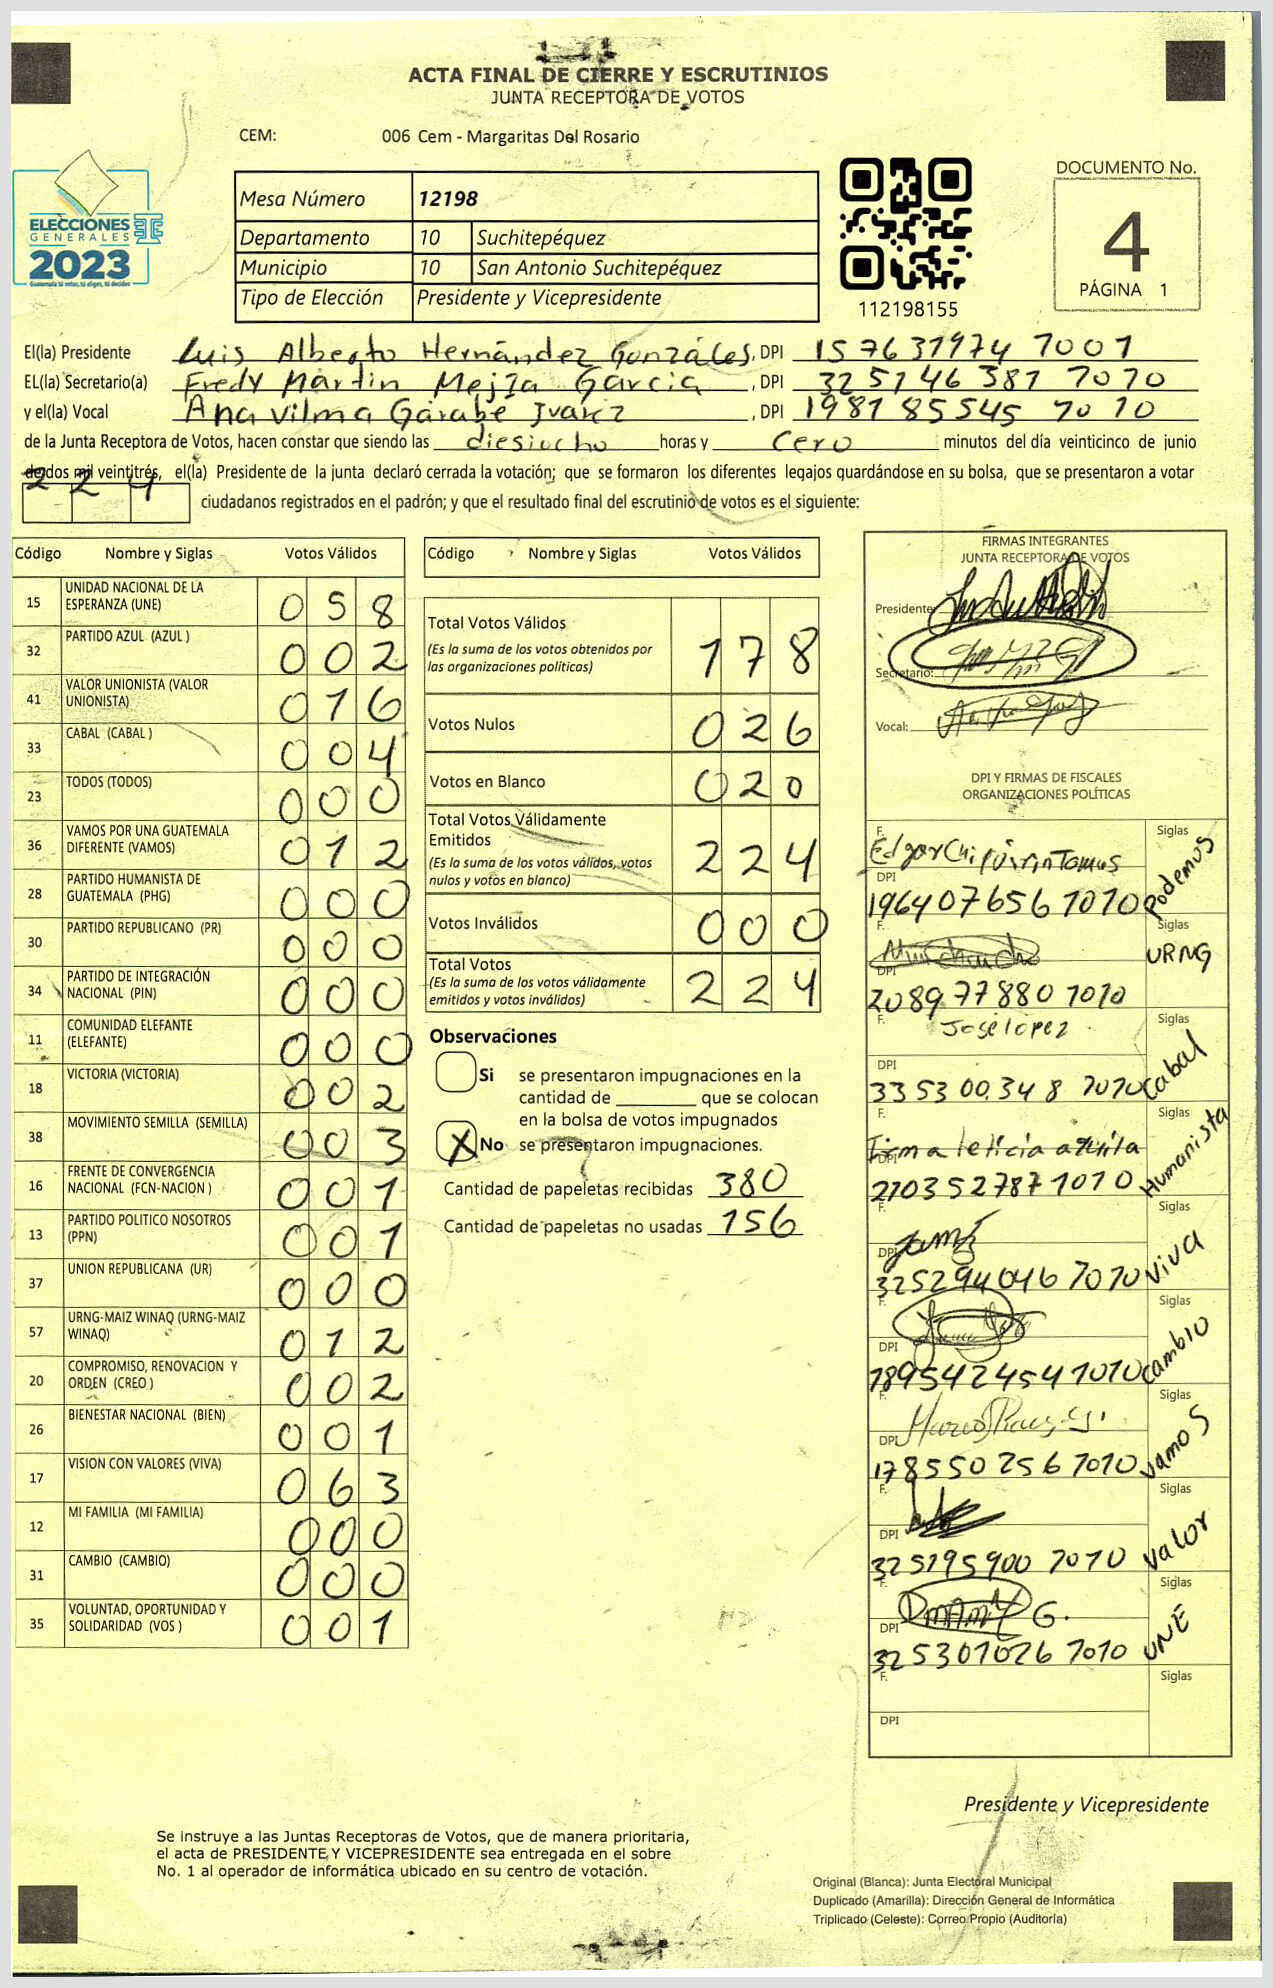 ACTA FINAL DE CIERRE Y ESCRUTINIOS
JUNTA RECEPTORA DE VOTOS
CEM: 006 Cem - Margaritas Del Rosario
ELECCIONES
GENERALES
2023
Guatemala tú votas, tú eliges, tú decides
Mesa Número 12198
Departamento 10 Suchitepéquez
Municipio 10 San Antonio Suchitepéquez
Tipo de Elección Presidente y Vicepresidente
112198155
DOCUMENTO No.
4
PÁGINA 1
El(la) Presidente Luis Alberto Hernández Gonzáles, DPI 157631974 1001
EL(la) Secretario(a) Fredy Martin Mejía García, DPI 325146381 1010
y el(la) Vocal Ana Vilma Garabe Juarez, DPI 198185545 1010
de la Junta Receptora de Votos, hacen constar que siendo las diesiocho horas y cero minutos del día veinticinco de junio
de dos mil veintitrés, el(la) Presidente de la junta declaró cerrada la votación; que se formaron los diferentes legajos guardándose en su bolsa, que se presentaron a votar
224 ciudadanos registrados en el padrón; y que el resultado final del escrutinio de votos es el siguiente:
Código Nombre y Siglas Votos Válidos
15 UNIDAD NACIONAL DE LA ESPERANZA (UNE) 058
32 PARTIDO AZUL (AZUL ) 002
41 VALOR UNIONISTA (VALOR UNIONISTA) 016
33 CABAL (CABAL ) 004
23 TODOS (TODOS) 000
36 VAMOS POR UNA GUATEMALA DIFERENTE (VAMOS) 012
28 PARTIDO HUMANISTA DE GUATEMALA (PHG) 000
30 PARTIDO REPUBLICANO (PR) 000
34 PARTIDO DE INTEGRACIÓN NACIONAL (PIN) 000
11 COMUNIDAD ELEFANTE (ELEFANTE) 000
18 VICTORIA (VICTORIA) 002
38 MOVIMIENTO SEMILLA (SEMILLA) 003
16 FRENTE DE CONVERGENCIA NACIONAL (FCN-NACION ) 001
13 PARTIDO POLITICO NOSOTROS (PPN) 001
37 UNION REPUBLICANA (UR) 000
57 URNG-MAIZ WINAQ (URNG-MAIZ WINAQ) 012
20 COMPROMISO, RENOVACION Y ORDEN (CREO ) 002
26 BIENESTAR NACIONAL (BIEN) 001
17 VISION CON VALORES (VIVA) 063
12 MI FAMILIA (MI FAMILIA) 000
31 CAMBIO (CAMBIO) 000
35 VOLUNTAD, OPORTUNIDAD Y SOLIDARIDAD (VOS ) 001
Código Nombre y Siglas Votos Válidos
Total Votos Válidos 178
(Es la suma de los votos obtenidos por
las organizaciones políticas)
Votos Nulos 026
Votos en Blanco 020
Total Votos Válidamente
Emitidos 224
(Es la suma de los votos válidos, votos
nulos y votos en blanco)
Votos Inválidos 000
Total Votos 224
(Es la suma de los votos válidamente
emitidos y votos inválidos)
Observaciones
Si se presentaron impugnaciones en la
cantidad de ________ que se colocan
en la bolsa de votos impugnados
X No se presentaron impugnaciones.
Cantidad de papeletas recibidas 380
Cantidad de papeletas no usadas 156
FIRMAS INTEGRANTES
JUNTA RECEPTORA DE VOTOS
Presidente:
Secretario:
Vocal:
DPI Y FIRMAS DE FISCALES
ORGANIZACIONES POLÍTICAS
F. Edgar Tomas Siglas
DPI 196407656 1010 Podemos
Siglas
DPI URNG
208977880 1010
F. José lópez Siglas
DPI 335300348 1010 Cabal
F. Irma leticia Siglas
DPI 210352787 1010 Humanista
F. Siglas
DPI 325294046 1010 Viva
F. Siglas
DPI 189542454 1010 cambio
F. Siglas
DPI 178550256 1010 vamos
F. Siglas
DPI 325195900 1010 valor
F. G. Siglas
DPI 325301026 1010 UNE
F. Siglas
DPI
Presidente y Vicepresidente
Se instruye a las Juntas Receptoras de Votos, que de manera prioritaria,
el acta de PRESIDENTE Y VICEPRESIDENTE sea entregada en el sobre
No. 1 al operador de informática ubicado en su centro de votación.
Original (Blanca): Junta Electoral Municipal
Duplicado (Amarilla): Dirección General de Informática
Triplicado (Celeste): Correo Propio (Auditoría)